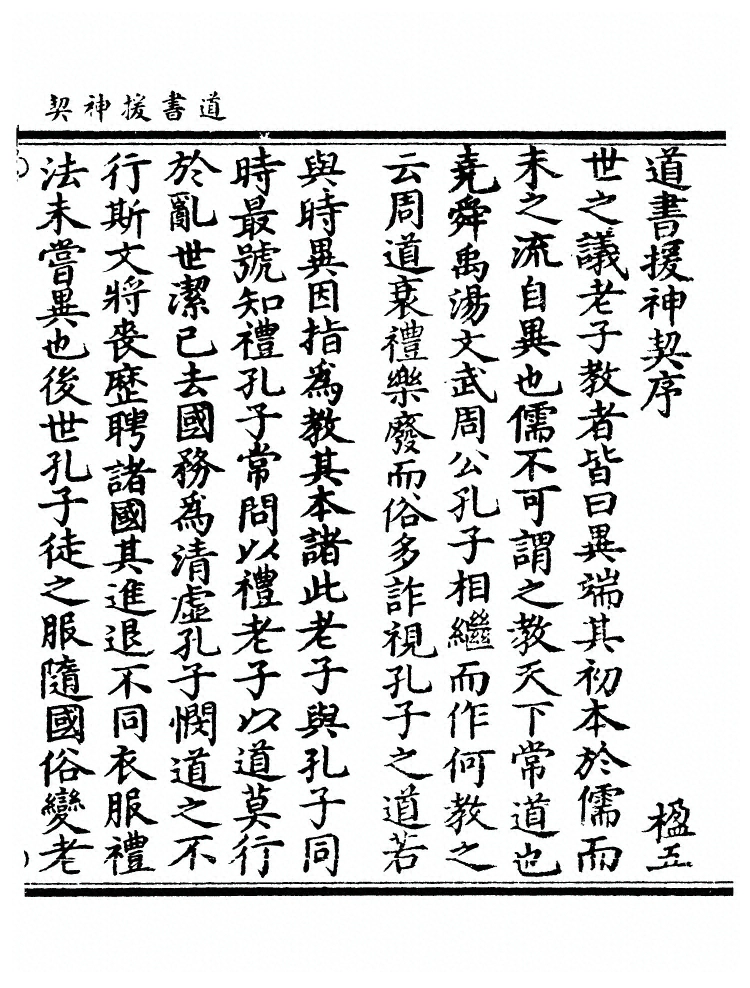 道書援神契
道書援神契序
楹五
世之議老子教者皆曰異端其初本於儒而
末之流自異也儒不可謂之教天下常道也
堯舜禹湯文武周公孔子相繼而作何教之
云周道衰禮樂廢而俗多詐視孔子之道若
與時異因指為教其本諸此老子與孔子同
時最號知禮孔子常問以禮老子以道莫行
於亂世潔己去國務為清虛孔子憫道之不
行斯文將喪歷聘諸國其進退不同衣服禮
法未嘗異也後世孔子徒之服隨國俗變老